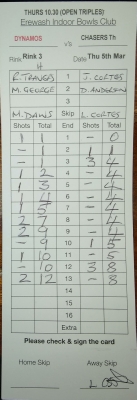 THURS 10.30 (OPEN TRIPLES)
Erewash Indoor Bowls Club
DYNAMOS vs CHASERS Th
Rink Rink 3 Date Thu 5th Mar
4
R. TRAVERS 1 J. CORTES
M. GEORGE 2 D. ANDERSON
3
M. DAWS Skip L. CORTES
Shots Total End Shots Total
1 1 1 - 0
- 1 2 1 1
- 1 3 3 4
1 2 4 - 4
1 3 5 - 4
1 4 6 - 4
1 5 7 - 4
2 7 8 - 4
2 9 9 - 4
- 9 10 1 5
1 10 11 - 5
- 10 12 3 8
2 12 13 - 8
14
15
16
Extra
Please check & sign the card
Home Skip Away Skip